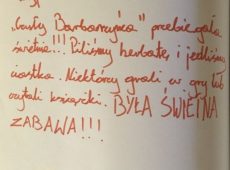 „Cawły Barbarzyńca" przebiegała
świetnie!!! Piliśmy herbatę i jedliśmy
ciastka. Niektórzy grali w gry lub
czytali książki. BYŁA ŚWIETNA
ZABAWA!!!